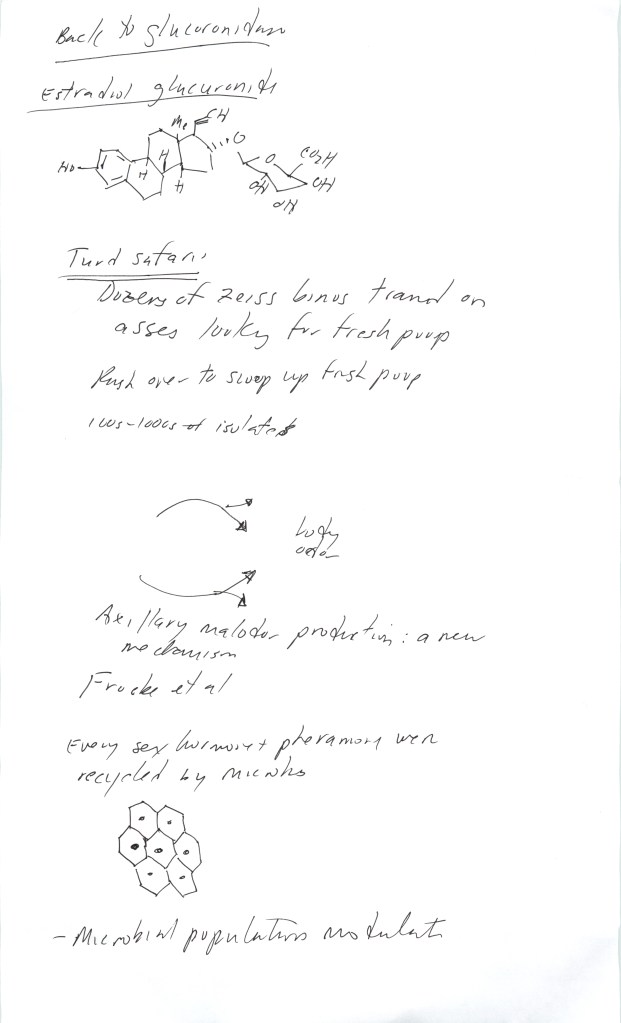 Back to glucuronidase
Estradiol glucuronide
Me
CH
HO
H
H
H
O
O
CO2H
OH
OH
OH
Turd safari
Dozens of Zeiss binos trained on
asses looky for fresh poop
Rush over to swoop up fresh poop
100s-1000s of isolates
body
odor
Axillary malodor production: a new
mechanism
et al
Every sex hormone + pheramone were
recycled by
- Microbial populations modulate